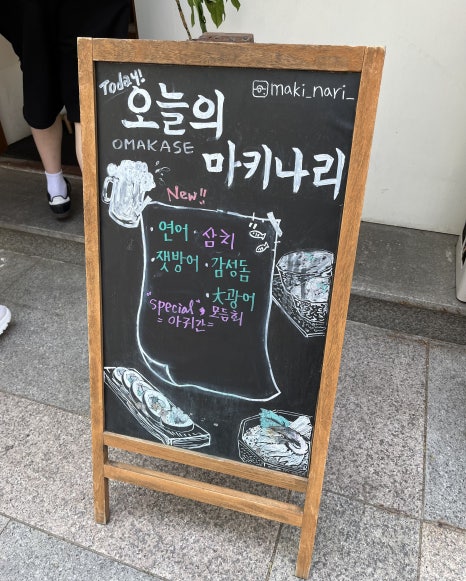 Today!
maki_nari_
오늘의
OMAKASE
마키나리
New!!
·연어 ·삼치
·잿방어 ·감성돔
·大광어
"special , 모듬회
= 아귀간 =